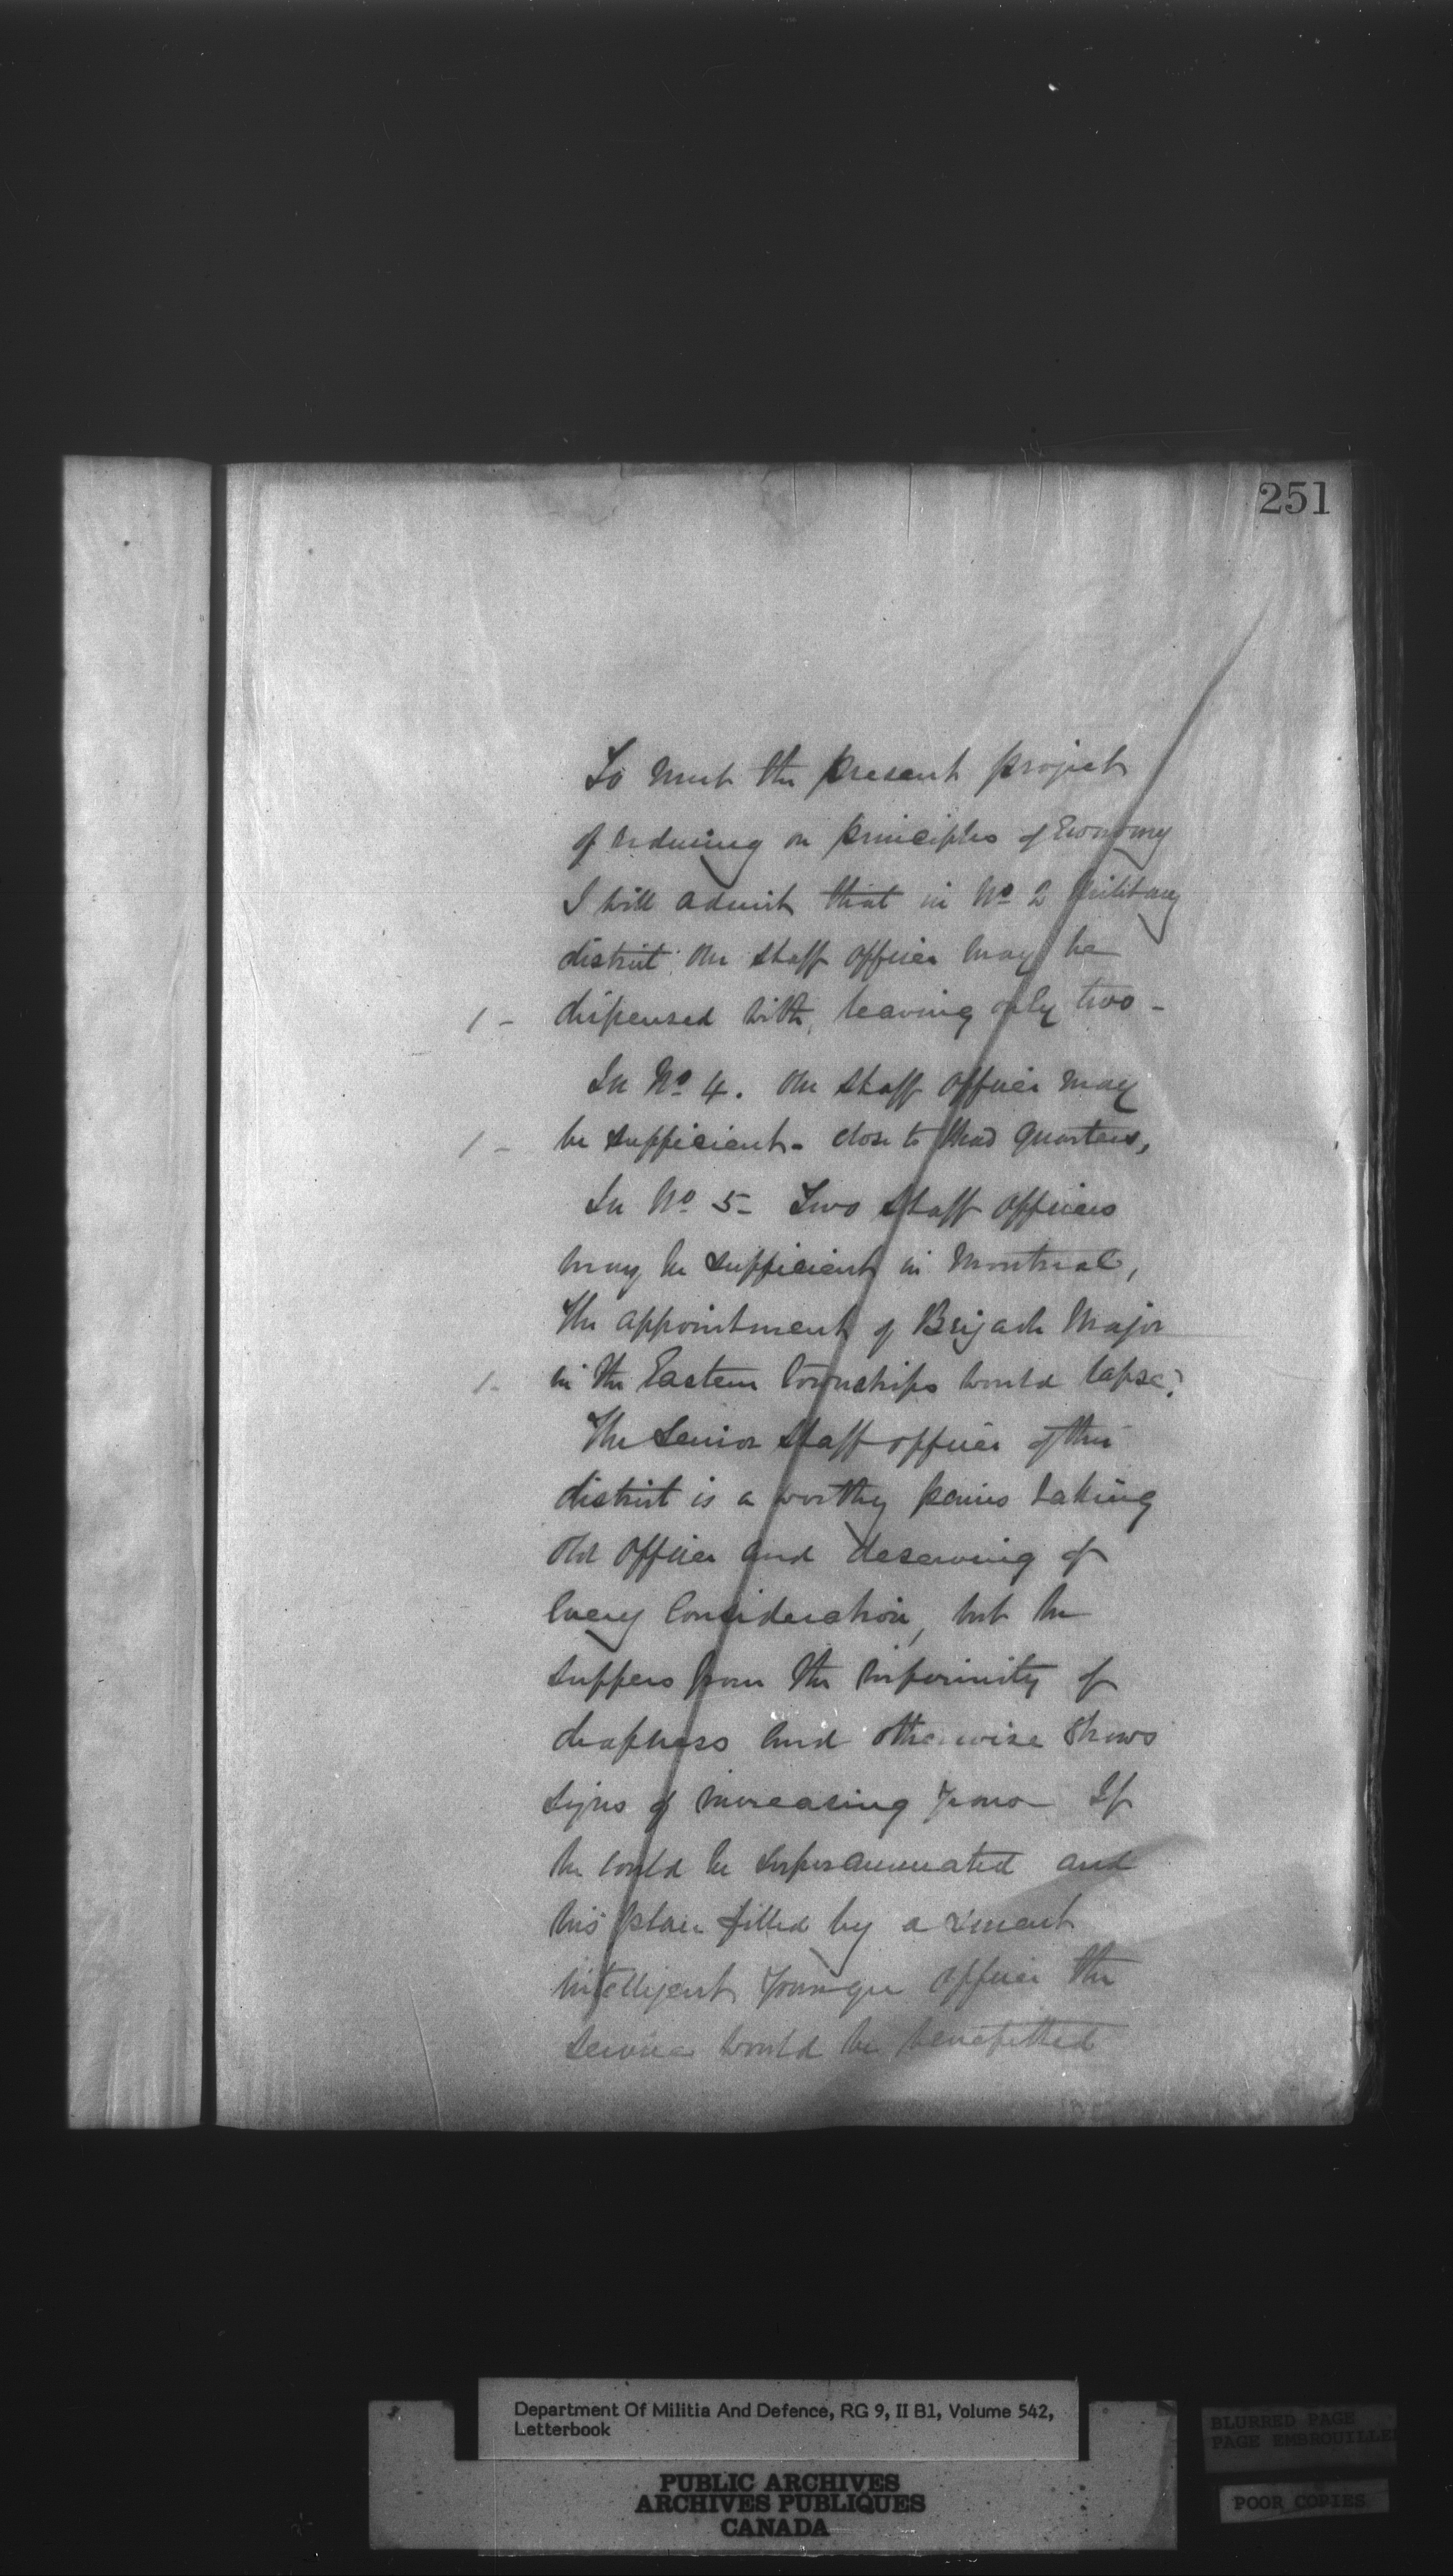 251
To meet the present project
of reducing on principles of Economy
I will admit that in No 2 Military
district one staff officer may be
1 - dispensed with, leaving only two -
In No 4. One staff officer may
1 - be sufficient - close to Head Quarters,
In No 5 - Two staff officers
may be sufficient in Montreal,
the appointment of Brigade Major
1 - in the Eastern Townships would lapse.
The Senior Staff officer of this
district is a worthy pains taking
old officer and deserving of
every consideration, but he
suffers from the infirmity of
deafness and otherwise shows
signs of increasing years - If
he could be superannuated and
his place filled by a smart
intelligent younger officer the
service would be benefitted
Department Of Militia And Defence, RG 9, II B1, Volume 542,
Letterbook
PUBLIC ARCHIVES
ARCHIVES PUBLIQUES
CANADA
BLURRED PAGE
PAGE EMBROUILLEE
POOR COPIES